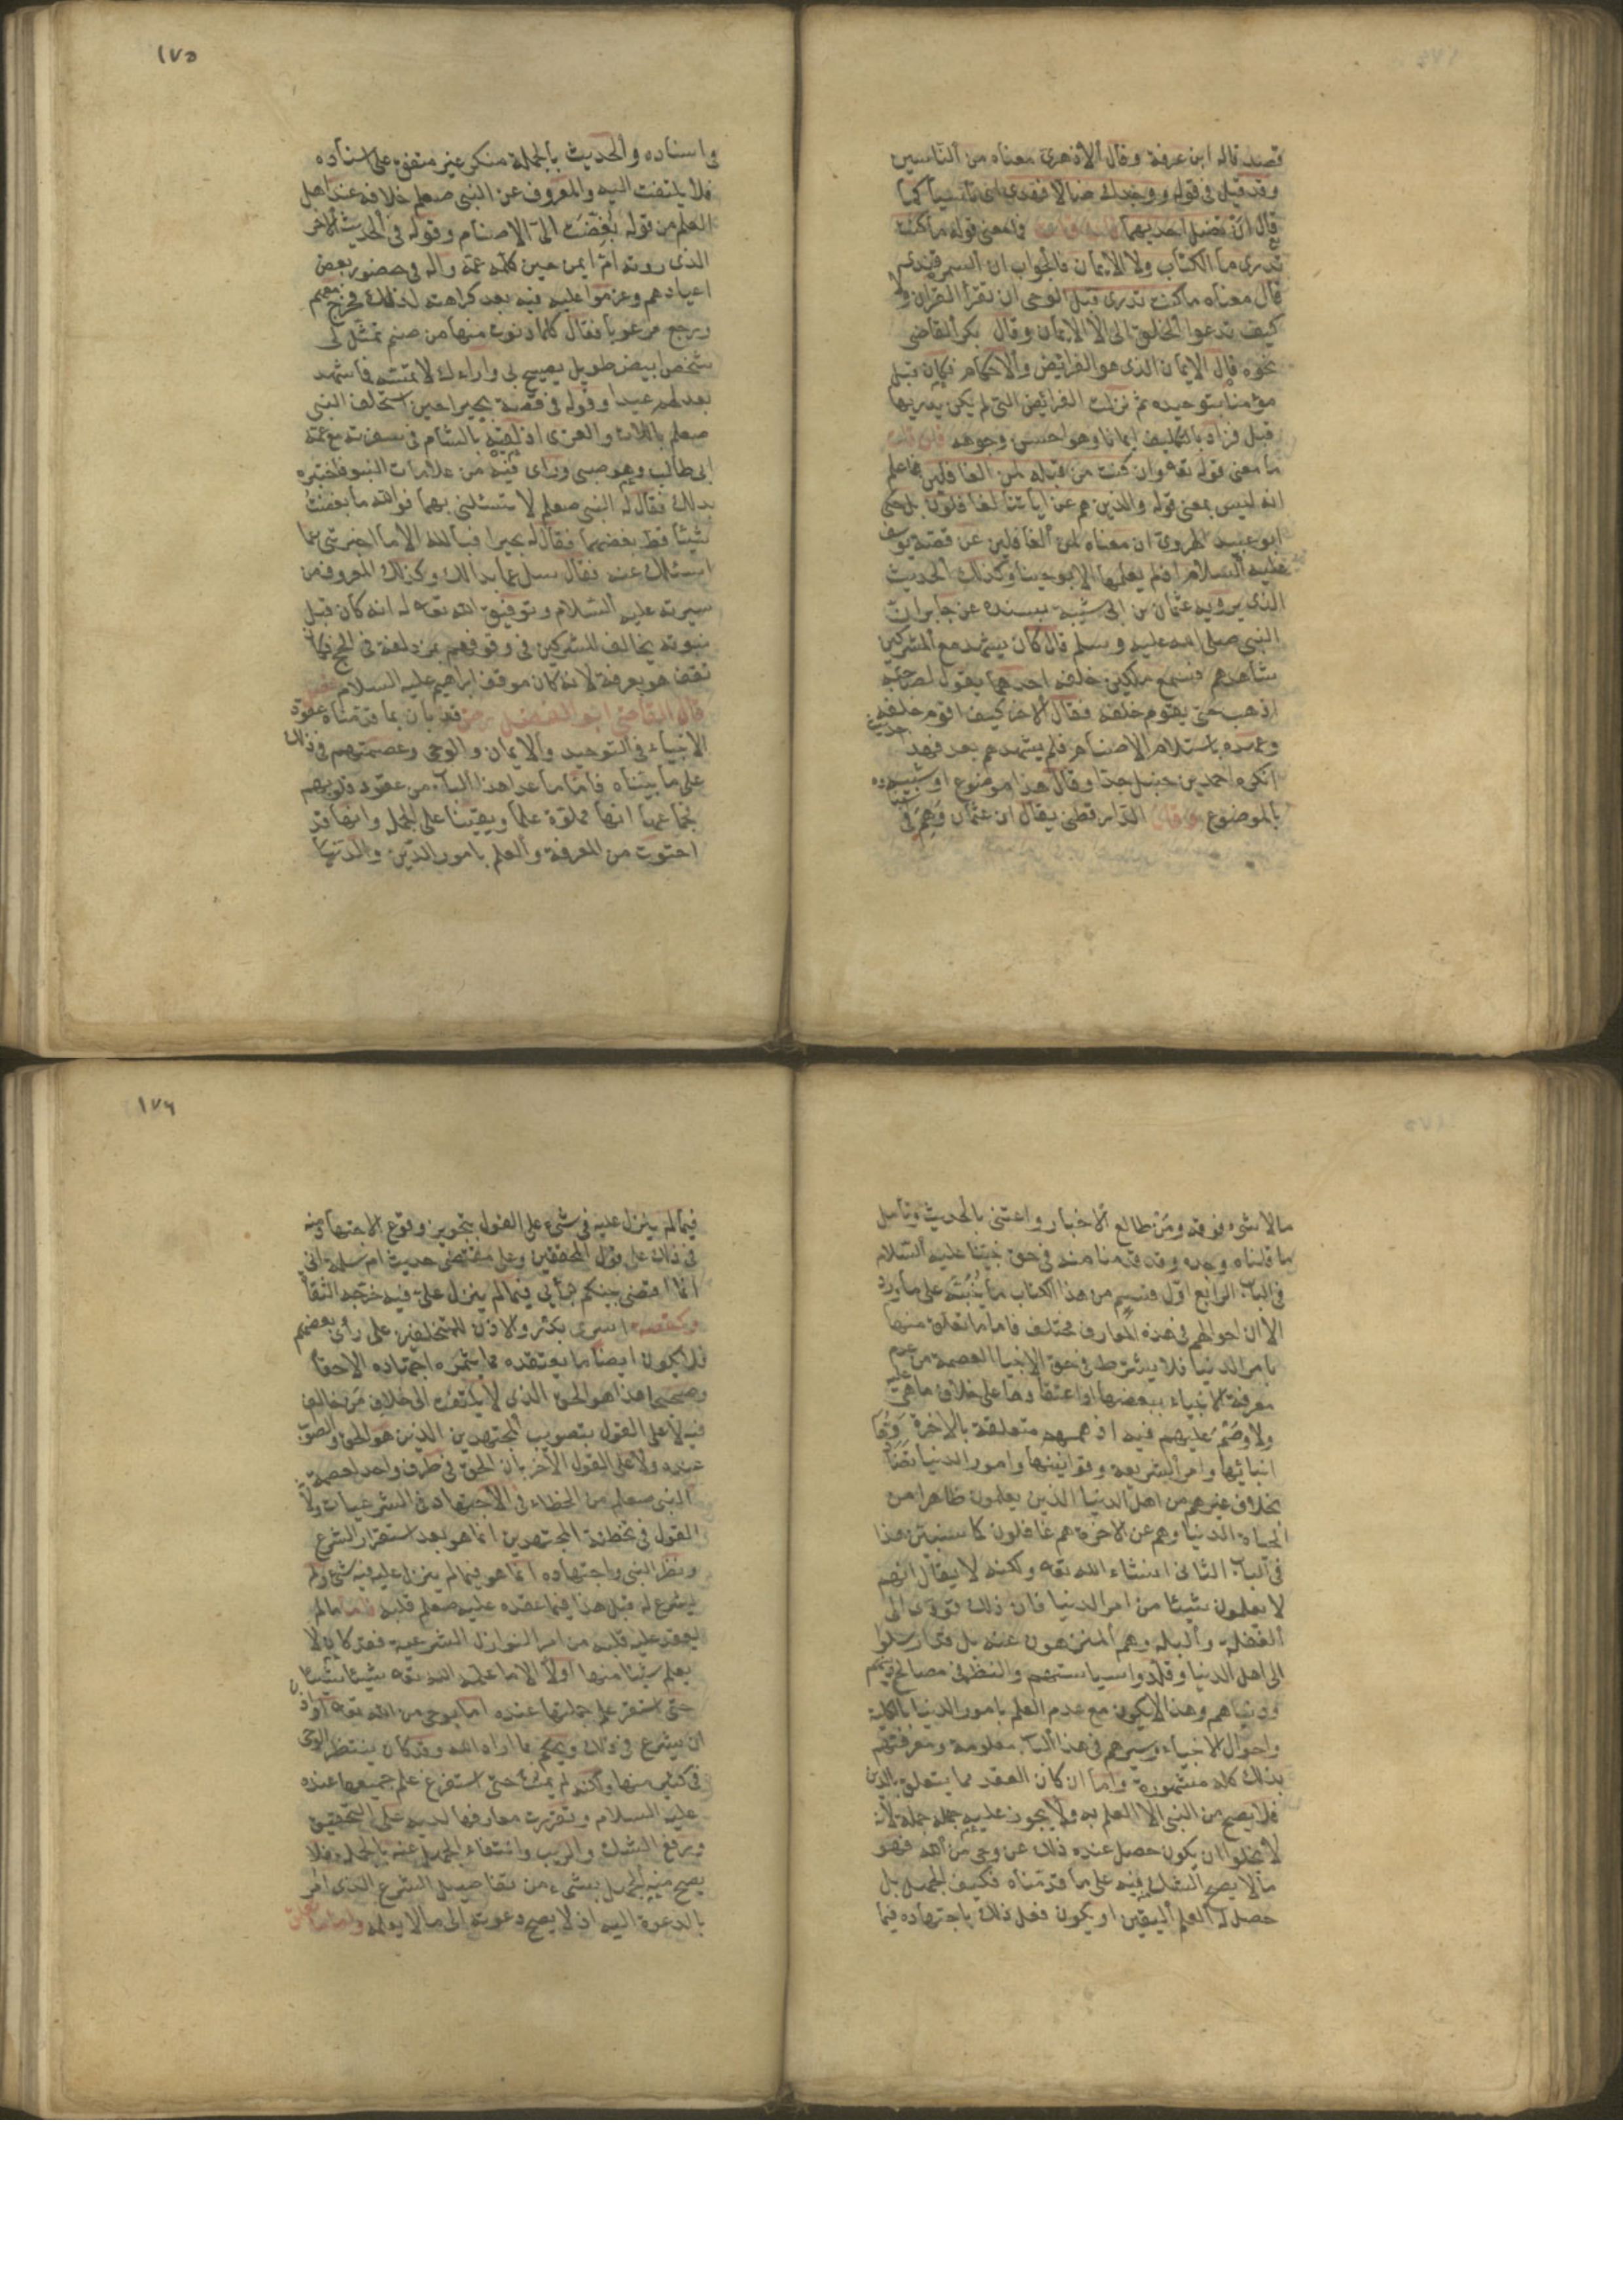 قصد قاله ابن عرفة وقال الازهرى معناه من الناسين
وقد قيل فى قوله ووجدك ضالا فهدى اى ناسيا كما
قال ان تضل احديهما فان قلت فما معنى قوله ما كنت
تدرى ما الكتاب ولا الايمان فالجواب ان السمرقندى
قال معناه ما كنت تدرى قبل الوحى ان تقرأ القران ولا
كيف تدعوا الخلق الى الايمان وقال بكر القاضى
نحوه قال الايمان الذى هو الفرائض والاحكام فكان قبل
مؤمنا بتوحيده ثم نزلت الفرائض التى لم يكن يدريها
قبل فزاد بالتكليف ايمانا وهو احسن وجوهه فان قلت
ما معنى قوله تعه وان كنت من قبله لمن الغافلين فاعلم
انه ليس بمعنى قوله والذين هم عن اياتنا لغافلون بل حكى
ابو عبيد الهروى ان معناه لمن الغافلين عن قصة يوسف
عليه السلام اذ لم يعلمها الا بوحينا وكذلك الحديث
الذى يرويه عثمان بن ابى شيبة بسنده عن جابر ان
النبى صلى الله عليه وسلم قال كان يشهد مع المشركين
مشاهدهم فسمع ملكين خلفه احدهما يقول لصاحبه
اذهب حتى تقوم خلفه فقال الاخر كيف اقوم خلفه
وعهده باستلام الاصنام فلم يشهدهم بعد فهذ حديث
انكره احمد بن حنبل جدا وقال هذا موضوع او شبيه
بالموضوع وقال الدارقطنى يقال ان عثمان وهم فى
١٧٥
فى اسناده والحديث بالجملة منكر غير متفق على اسناده
فلا يلتفت اليه والمعروف عن النبى صعلم خلافه عند اهل
العلم من قوله بغضت الى الاصنام وقوله فى الحديث الاخر
الذى روته ام ايمن حين كلمه عمه واله فى حضور بعض
اعيادهم وعزموا عليه فيه بعد كراهته لذلك فخرج معهم
ورجع مرعوبا فقال كلما دنوت منها من صنم تمثل لى
شخص ابيض طويل يصيح بى وراءك لا تمسه فما شهد
بعد لهم عيدا وقوله فى قصة بحيرا حين استحلف النبى
صعلم باللات والعزى اذ لقيه بالشام فى سفرته مع عمه
ابى طالب وهو صبى وراى فيه من علامات النبوة فاختبره
بذلك فقال له النبى صعلم لا تسئلنى بهما فوالله ما بغضت
شيئا قط بغضهما فقال له بحيرا فبالله الا ما اخبرتنى عما
اسئلك عنه فقال سل عما بدالك وكذلك المعروف من
سيرته عليه السلام وتوفيق الله تعه له انه كان قبل
نبوته يخالف المشركين فى وقوفهم بمزدلفة فى الحج فكان
تقف هو بعرفة لانه كان موقف ابراهيم عليه السلام فصل
قال القاضى ابو الفضل قد بان بما قدمناه عقود
الانبياء فى التوحيد والايمان والوحى وعصمتهم فى ذلك
على ما بيناه فاما ما عدا هذا الباب من عقود قلوبهم
فجماعها انها مملوة علما ويقينا على الجمل وانها قد
احتوت من المعرفة والعلم بامور الدين والدنيا
ما لا شىء فوقه ومن طالع الاخبار واعتنى بالحديث وتامل
ما قلناه وجده وقد قدمنا منه فى حق نبينا عليه السلام
فى الباب الرابع اول قسم من هذا الكتاب ما ينبئه على ما ورد
الا ان احوالهم فى هذه المعارف مختلف فاما ما تعلق منها
بامر الدنيا فلا يشترط فى حق الانبيا العصمة من عدم
معرفة الانبياء ببعضها او اعتقادها على خلاف ما هى عليه
ولا وصم عليهم فيه اذ هممهم متعلقة بالاخرة
انبائها وامر الشريعة وقوانينها وامور الدنيا
بخلاف غيرهم من اهل الدنيا الذين يعلمون ظاهرا من
الحياة الدنيا وهم عن الاخرة هم غافلون كما سنبين هذا
فى الباب الثانى انشاء الله تعه ولكنه لا يقال انهم
لا يعلمون شيئا من امر الدنيا فان ذلك تؤدى الى
الغفلة والبله وهم المنزهون عنه بل قد ارسلوا
الى اهل الدنيا وقلدوا سياستهم والنظر فى مصالح دينهم
ودنياهم وهذا لا يكون مع عدم العلم بامور الدنيا بالكلية
واحوال الانبياء وسيرهم فى هذا الباب معلومة ومعرفتهم
بذلك كله مشهورة واما ان كان العقد مما يتعلق بالدين
فلا يصح من النبى الا العلم به ولا يجوز عليه جهله جملة لانه
لا يخلوا ان يكون حصل عنده ذلك عن وحى من الله فهو
ما لا يصح الشك فيه على ما قدمناه فكيف الجهل بل
حصل له العلم اليقين او يكون فعل ذلك باجتهاده فيما
١٧٦
فيما لم ينزل عليه فى شىء على القول بتجويز وقوع الاجتهاد منه
فى ذلك على قول المحققين وعلى مقتضى حديث ام سلمة انى
انما اقضى بينكم برأيى فيما لم ينزل على فيه خرجه الثقات
وكقصة اسرى بدر والاذن للمتخلفين على رأى بعضهم
فلا يكون ايضا ما يعتقده مما يثمره اجتهاده الا حقا
وصحيحا هذا هو الحق الذى لا يلتفت الى خلاف من خالف
فيه لا على القول بتصويب المجتهدين الذين هو الحق والصواب
عنده ولا على القول الاخر بان الحق فى طرف واحد لعصمة
النبى صعلم من الخطاء فى الاجتهاد فى الشرعيات ولان
القول فى تخطئة المجتهدين انما هو بعد استقرار الشرع
ونظر النبى واجتهاده انما هو فيما لم ينزل عليه فيه شىء ولم
يشرع له قبل هذا فيما عقده عليه صعلم قلبه فاما ما لم
يعقد عليه قلبه من امر النوازل الشرعية فقد كان لا
يعلم شيئا منها اولا الا ما علمه الله تعه شيئا شيئا
حتى استقر علم جملتها عنده اما بوحى من الله تعه او اذن
ان يشرع فى ذلك ويحكم بما اراه الله وقد كان ينتظر الوحى
فى كثير منها ولكنه لم يمت حتى استفرغ علم جميعها عنده
عليه السلام وتقررت معارفها لديه على التحقيق
ورفع الشك والريب وانتفاء الجهل عنه بالجملة فلا
يصح منه الجهل بشىء من تفاصيل الشرع الذى امر
بالدعوة اليه اذ لا يصح دعوته الى ما لا يعلمه واما ما تعلق